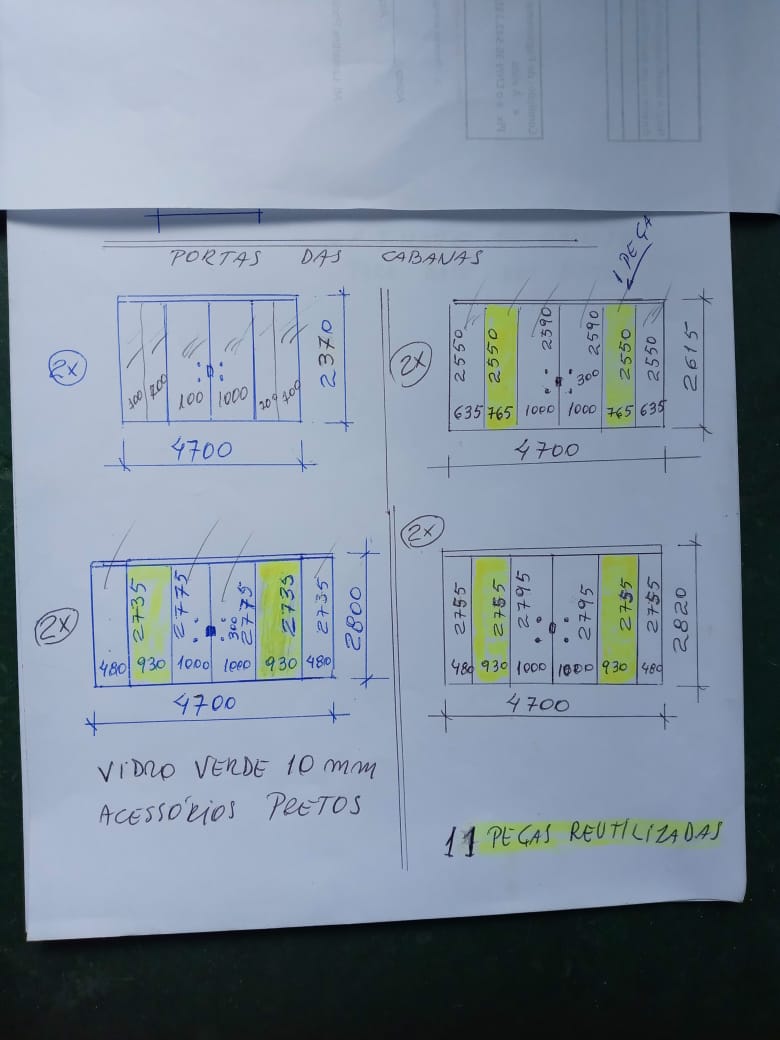 PORTAS DAS CABANAS
1 PEÇA
2x
300 700 100 1000 700
2370
4700
2x
2550 2550 2590 2590 2550 2550
300
635 765 1000 1000 765 635
2615
4700
2x
2735 2775 2775 2735 2735
300
480 930 1000 1000 930 480
2800
4700
2x
2755 2755 2795 2795 2755 2755
480 930 1000 1000 930 480
2820
4700
VIDRO VERDE 10 mm
ACESSÓRIOS PRETOS
11 PEÇAS REUTILIZADAS